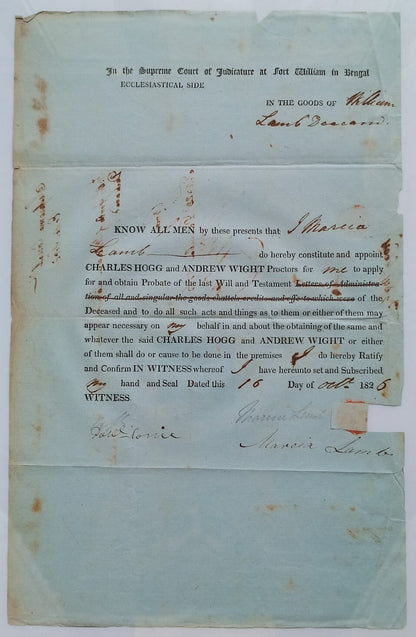 In the Supreme Court of Judicature at Fort William in Bengal
ECCLESIASTICAL SIDE
IN THE GOODS OF William
Lamb Deceased.
KNOW ALL MEN by these presents that I Marcia
Lamb do hereby constitute and appoint
CHARLES HOGG and ANDREW WIGHT Proctors for me to apply
for and obtain Probate of the last Will and Testament Letters of Administra
tion of all and singular the goods chattels credits and effects which were of the
Deceased and to do all such acts and things as to them or either of them may
appear necessary on my behalf in and about the obtaining of the same and
whatever the said CHARLES HOGG and ANDREW WIGHT or either
of them shall do or cause to be done in the premises I do hereby Ratify
and Confirm IN WITNESS whereof I have hereunto set and Subscribed
my hand and Seal Dated this 16 Day of Octr 1826
WITNESS
Marcia Lamb
Marcia Lamb